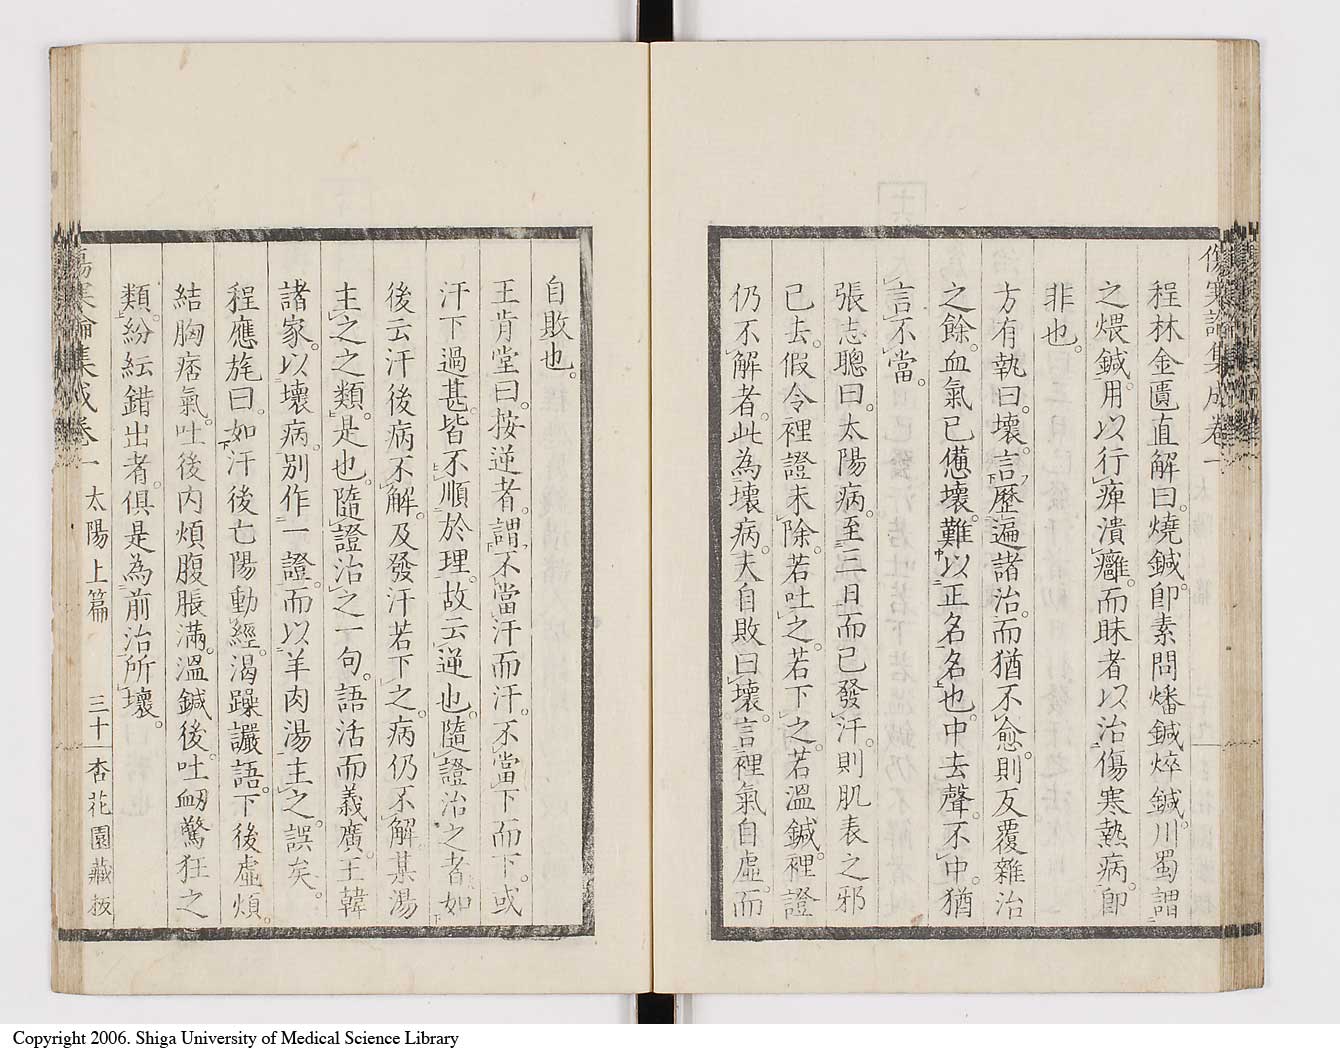 傷寒論集成卷一
程林金匱直解曰。燒鍼。卽素問燔鍼焠鍼。川蜀謂
之煨鍼。用以行痺潰癰。而昧者以治傷寒熱病。卽
非也。
方有執曰。壞。言歷遍諸治。而猶不愈。則反覆雜治
之餘。血氣已憊壞。難以正名名也。中去聲。不中猶
言不當。
張志聰曰。太陽病。至三日而已發汗。則肌表之邪
已去。假令裡證未除。若吐之。若下之。若溫鍼。裡證
仍不解者。此為壞病。夫自敗曰壞。言裡氣自虛。而
自敗也。
王肯堂曰。按逆者。謂不當汗而汗。不當下而下。或
汗下過甚。皆不順於理。故云逆也。隨證治之者。如
後云汗後病不解。及發汗若下之。病仍不解某湯
主之之類。是也。隨證治之一句。語活而義廣。王韓
諸家。以壞病。別作一證。而以羊肉湯主之。誤矣。
程應旄曰。如汗後亡陽動經。渴躁讝語。下後虛煩。
結胸痞氣。吐後內煩腹脹滿。溫鍼後。吐衂驚狂之
類。紛紜錯出者。俱是為前治所壞。
傷寒論集成卷一 太陽上篇 三十一 杏花園藏板
Copyright 2006. Shiga University of Medical Science Library